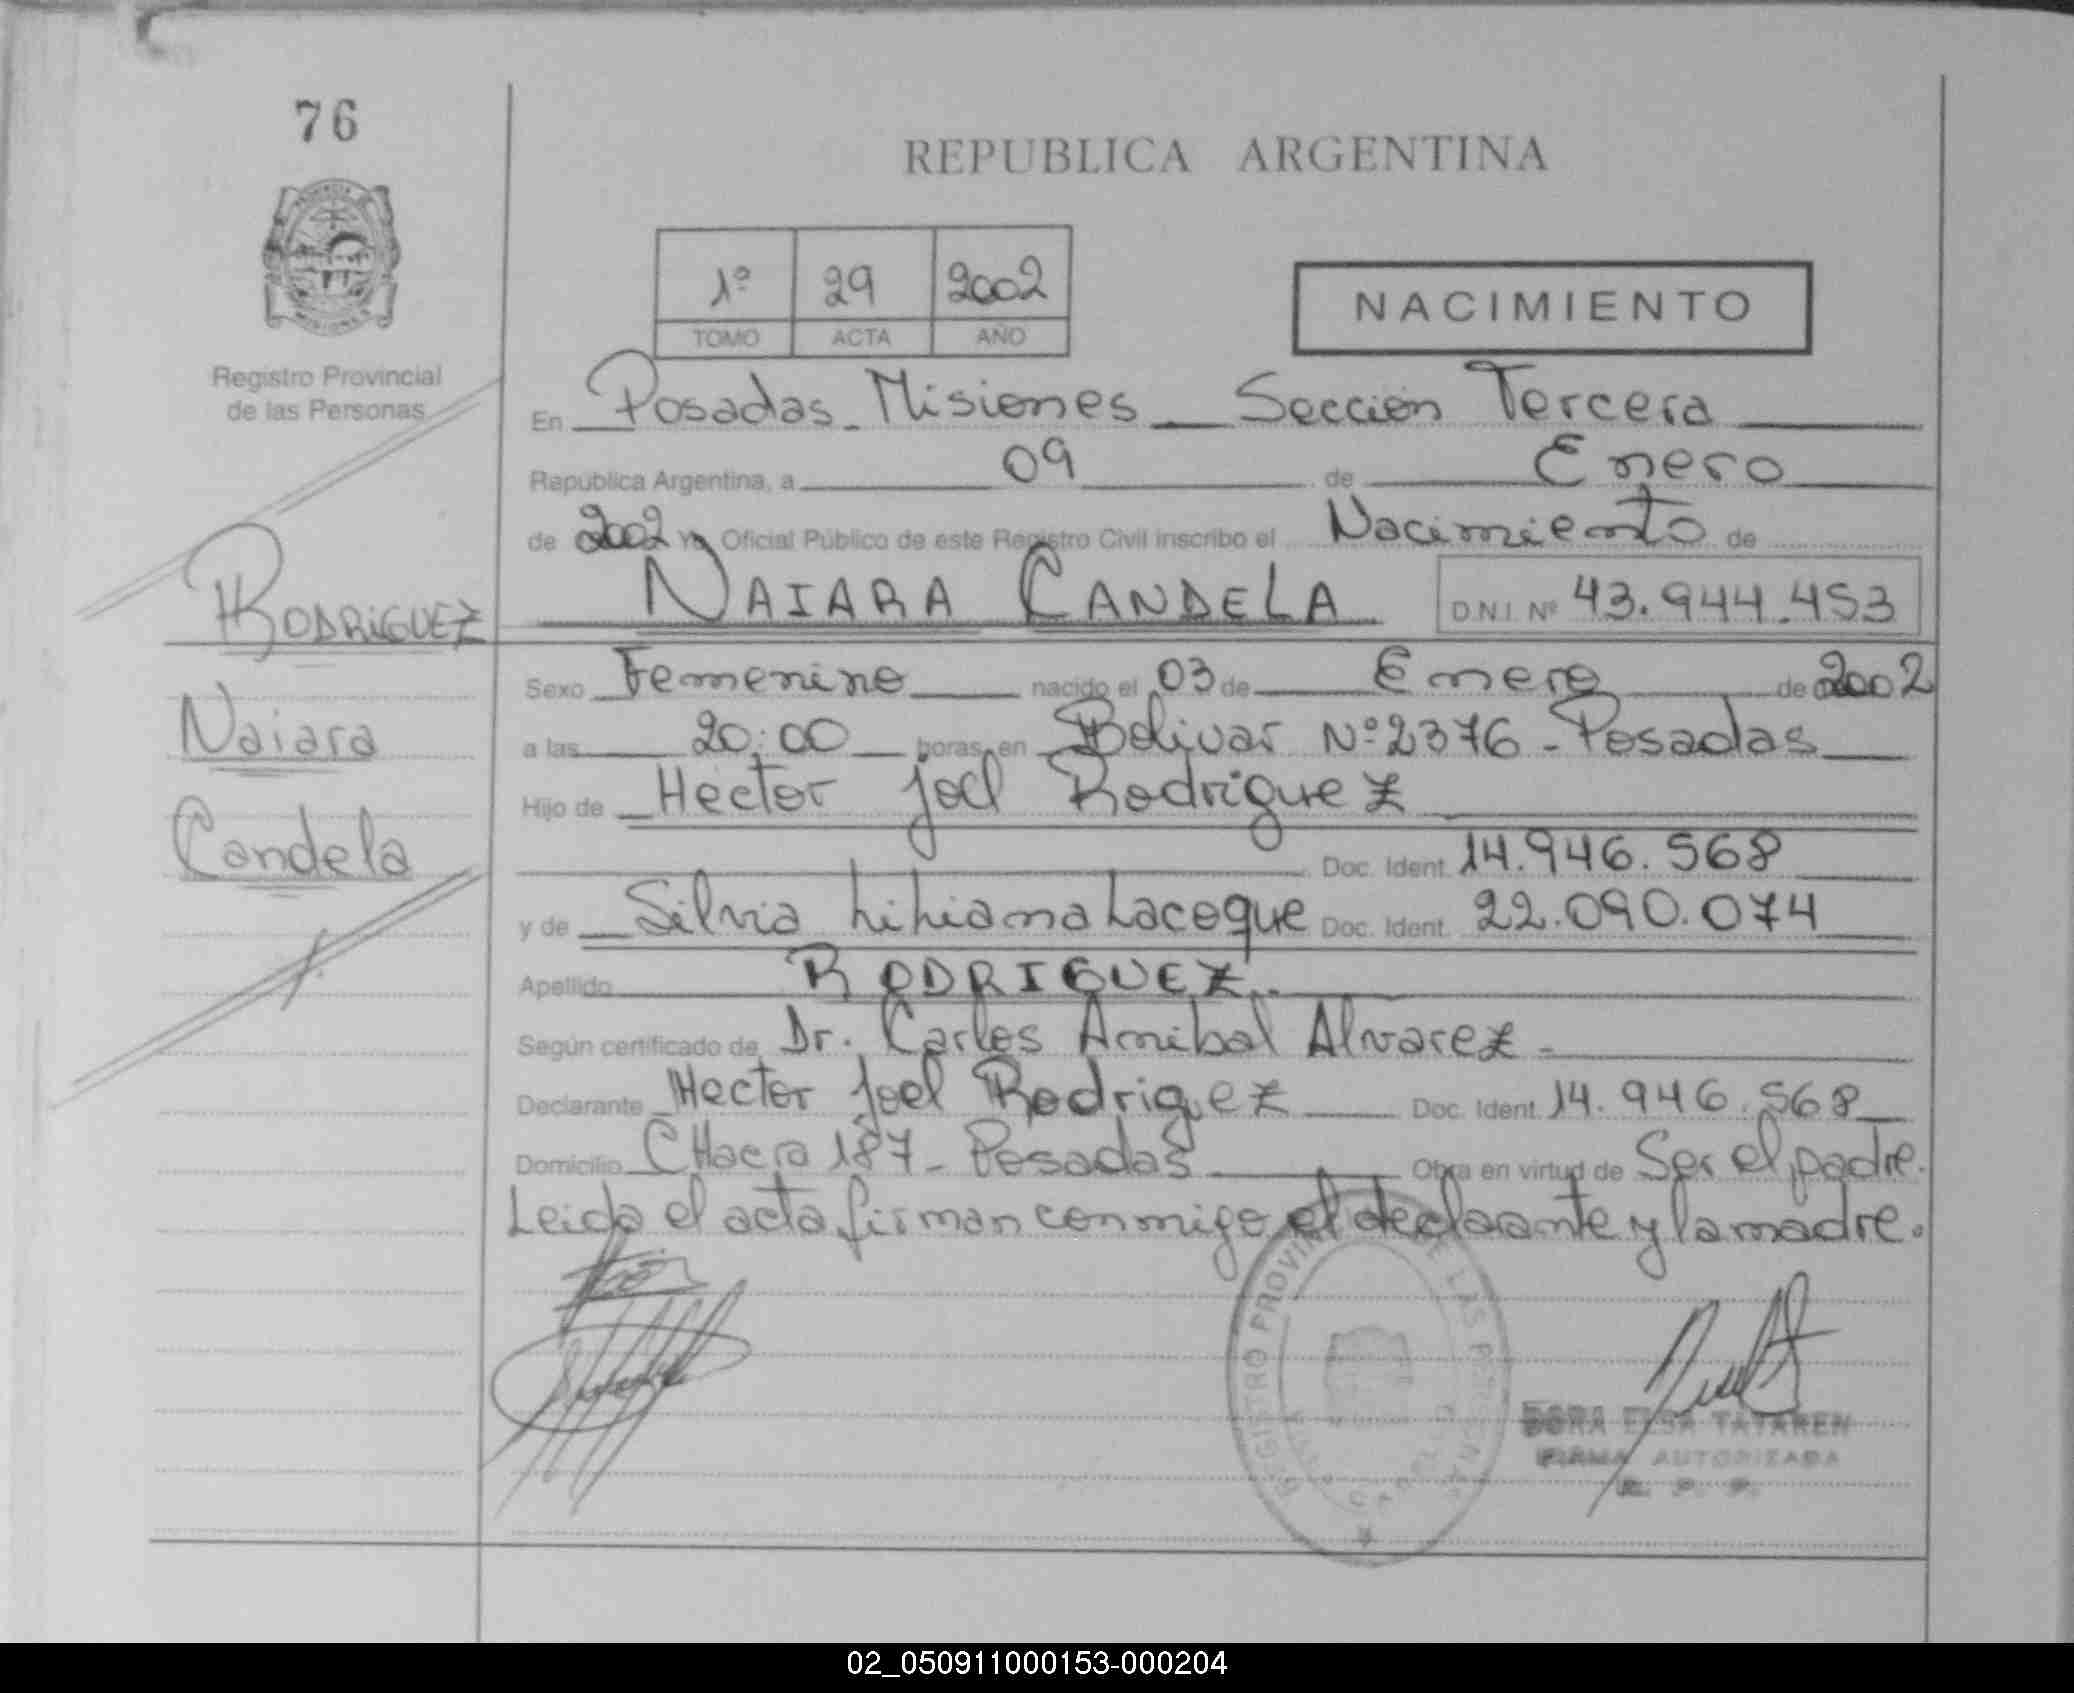 76
REPUBLICA ARGENTINA
1º 29 2002
TOMO ACTA AÑO
NACIMIENTO
PROVINCIA
MISIONES
Registro Provincial
de las Personas
En Posadas - Misiones Sección Tercera
República Argentina, a 09 de Enero
de 2002 Yo Oficial Público de este Registro Civil inscribo el Nacimiento de
RODRIGUEZ
NAIARA CANDELA D.N.I. Nº 43.944.453
Naiara
Candela
Sexo Femenino nacido el 03 de Enero de 2002
a las 20:00 horas, en Bolivar Nº 2376 - Posadas
Hijo de Hector Joel Rodriguez
Doc. Ident. 14.946.568
y de Silvia Liliana Lacoque Doc. Ident. 22.090.074
Apellido RODRIGUEZ.
Según certificado de Dr. Carlos Anibal Alvarez -
Declarante Hector Joel Rodriguez Doc. Ident. 14.946.568
Domicilio CHacra 187 - Posadas Obra en virtud de Ser el padre.
Leida el acta firman conmigo el declarante y la madre.
REGISTRO PROVINCIAL DE LAS PERSONAS
DORA ELSA TATAREN
FIRMA AUTORIZADA
R. P. P.
02_050911000153-000204